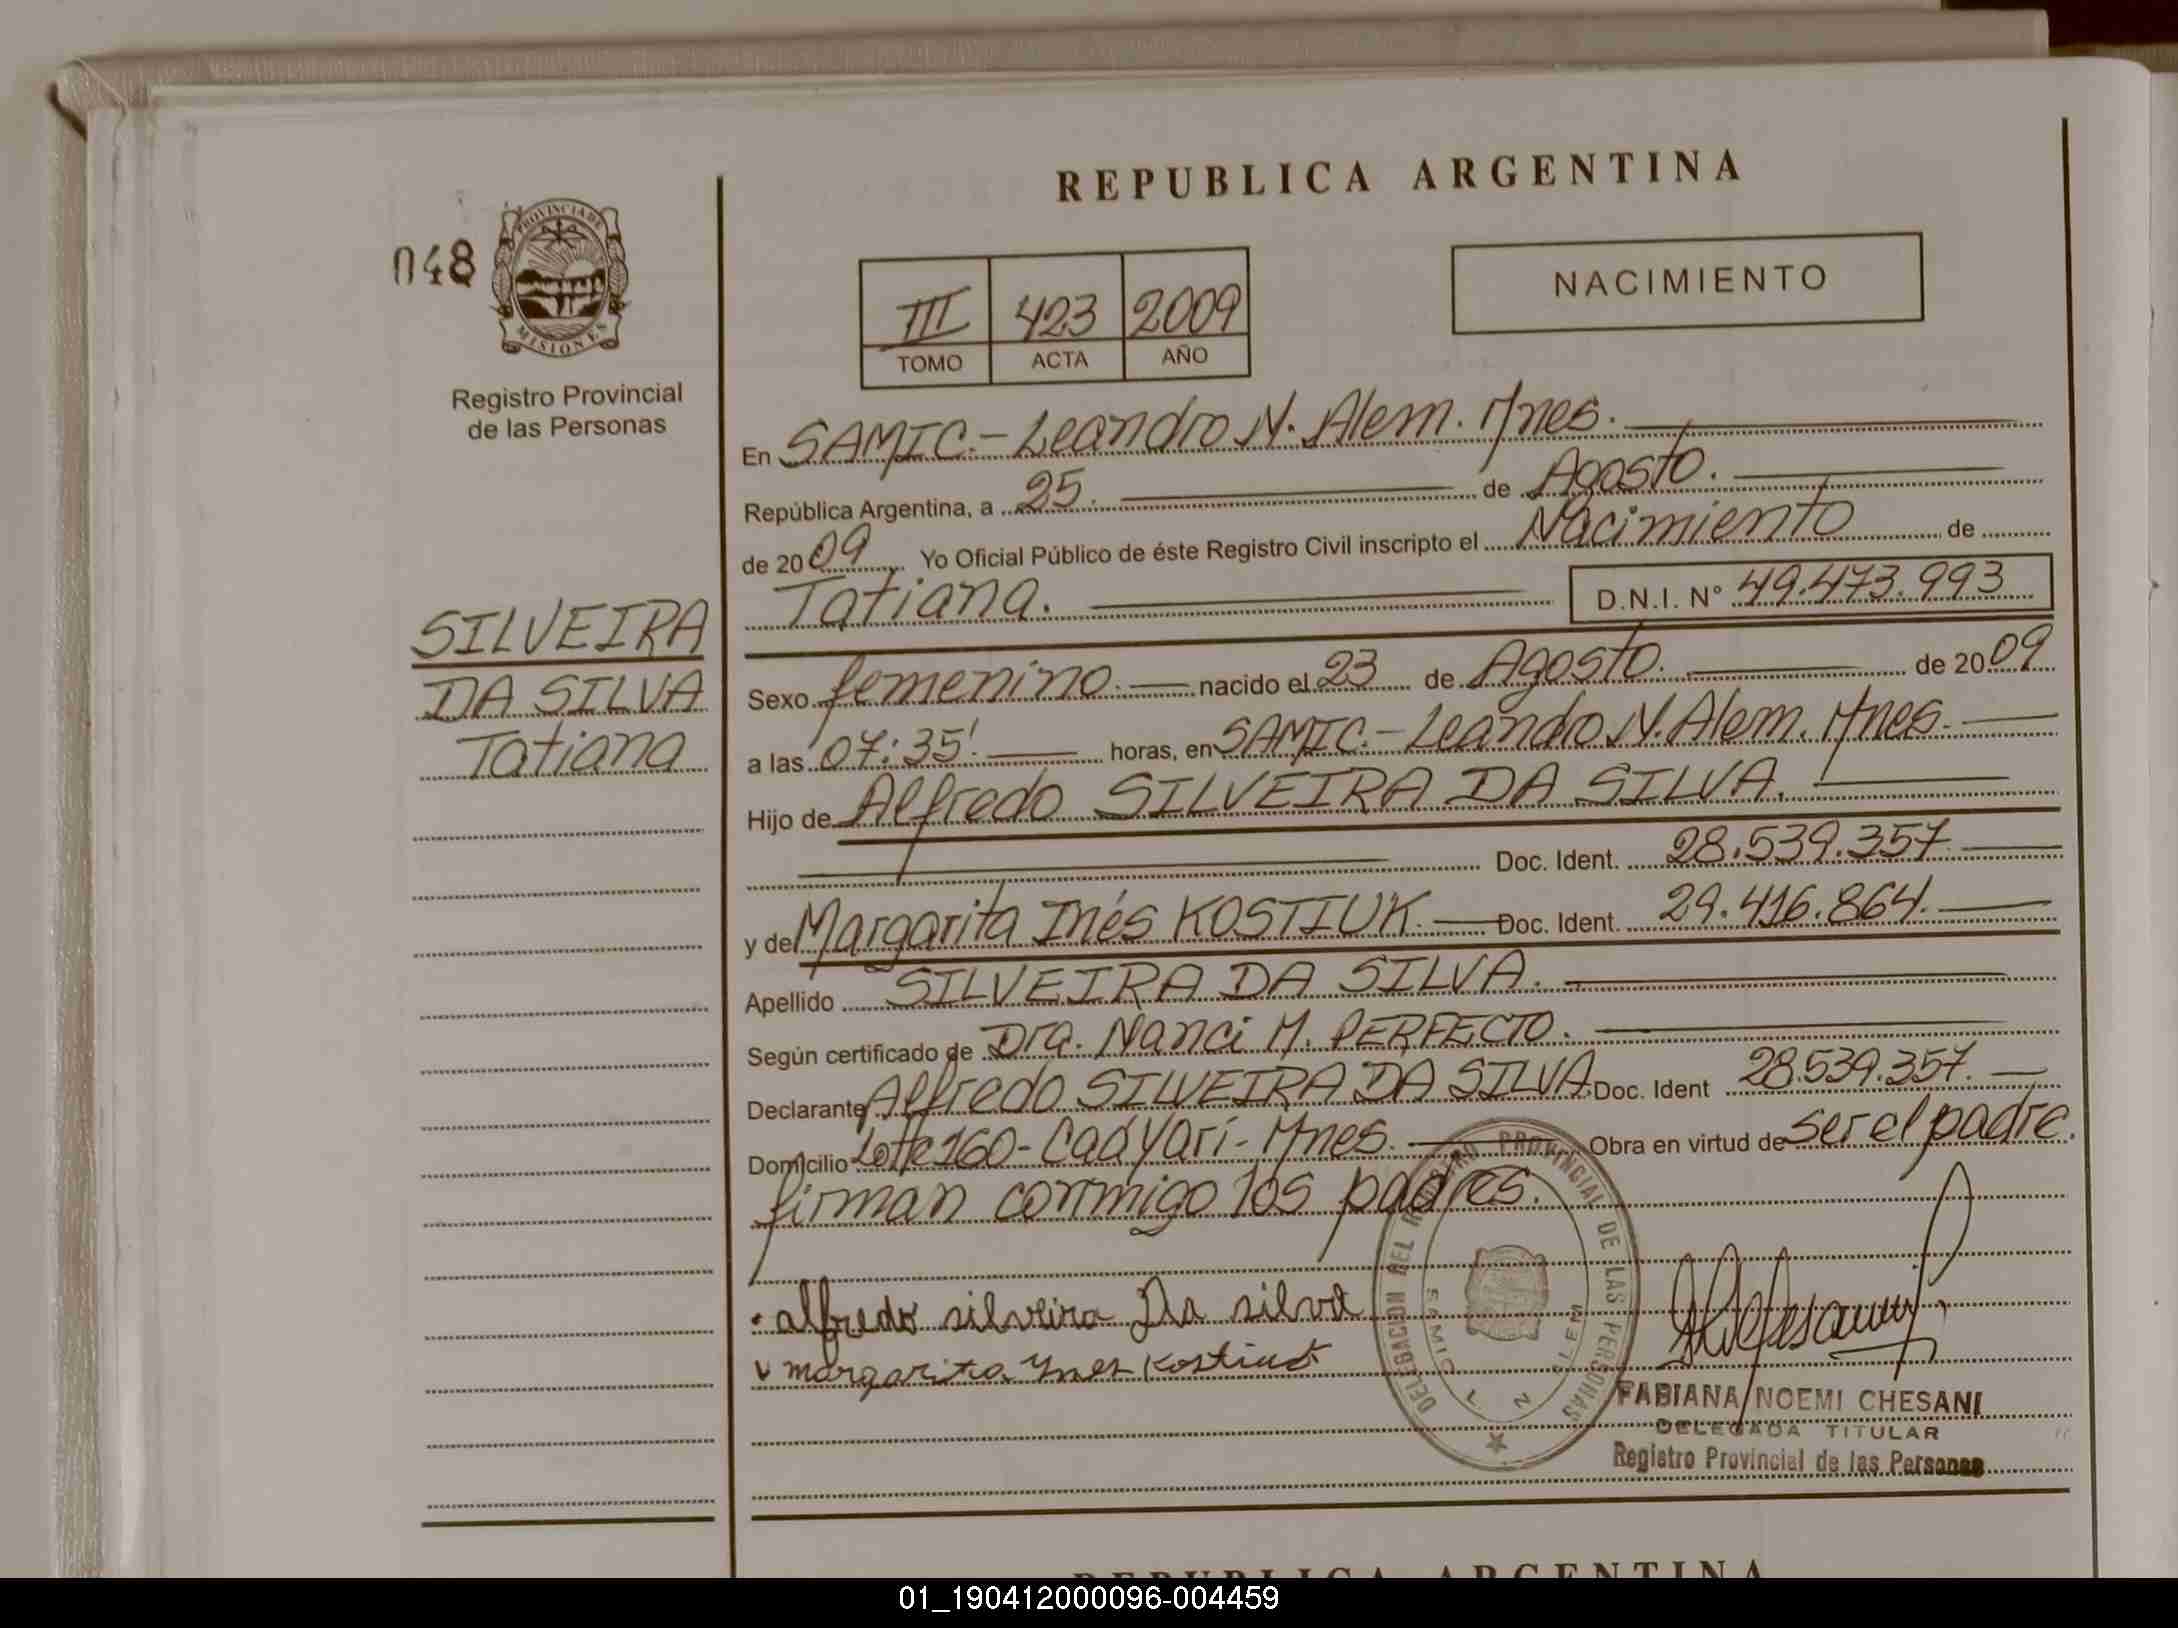 REPUBLICA ARGENTINA
048
PROVINCIA DE
MISIONES
Registro Provincial
de las Personas
III 423 2009
TOMO ACTA AÑO
NACIMIENTO
En SAMIC.- Leandro N. Alem. Mnes.
República Argentina, a 25. de Agosto.
de 2009 Yo Oficial Público de éste Registro Civil inscripto el Nacimiento de
Tatiana. D.N.I. N° 49.473.993
SILVEIRA
DA SILVA
Tatiana
Sexo femenino. nacido el 23 de Agosto. de 2009
a las 07:35'. horas, en SAMIC.- Leandro N. Alem. Mnes.
Hijo de Alfredo SILVEIRA DA SILVA.
Doc. Ident. 28.539.357
y de Margarita Inés KOSTIUK. Doc. Ident. 29.416.864.
Apellido SILVEIRA DA SILVA.
Según certificado de Dra. Nanci M. PERFECTO.
Declarante Alfredo SILVEIRA DA SILVA. Doc. Ident 28.539.357.
Domicilio Lote 160- Caá Yarí- Mnes. Obra en virtud de ser el padre.
firman conmigo los padres.
alfredo silveira Da silva
margarita Ynes Kostiuk
DELEGACION DEL REGISTRO PROVINCIAL DE LAS PERSONAS
SAMIC L N ALEM
FABIANA NOEMI CHESANI
DELEGADA TITULAR
Registro Provincial de las Personas
REPUBLICA ARGENTINA
01_190412000096-004459